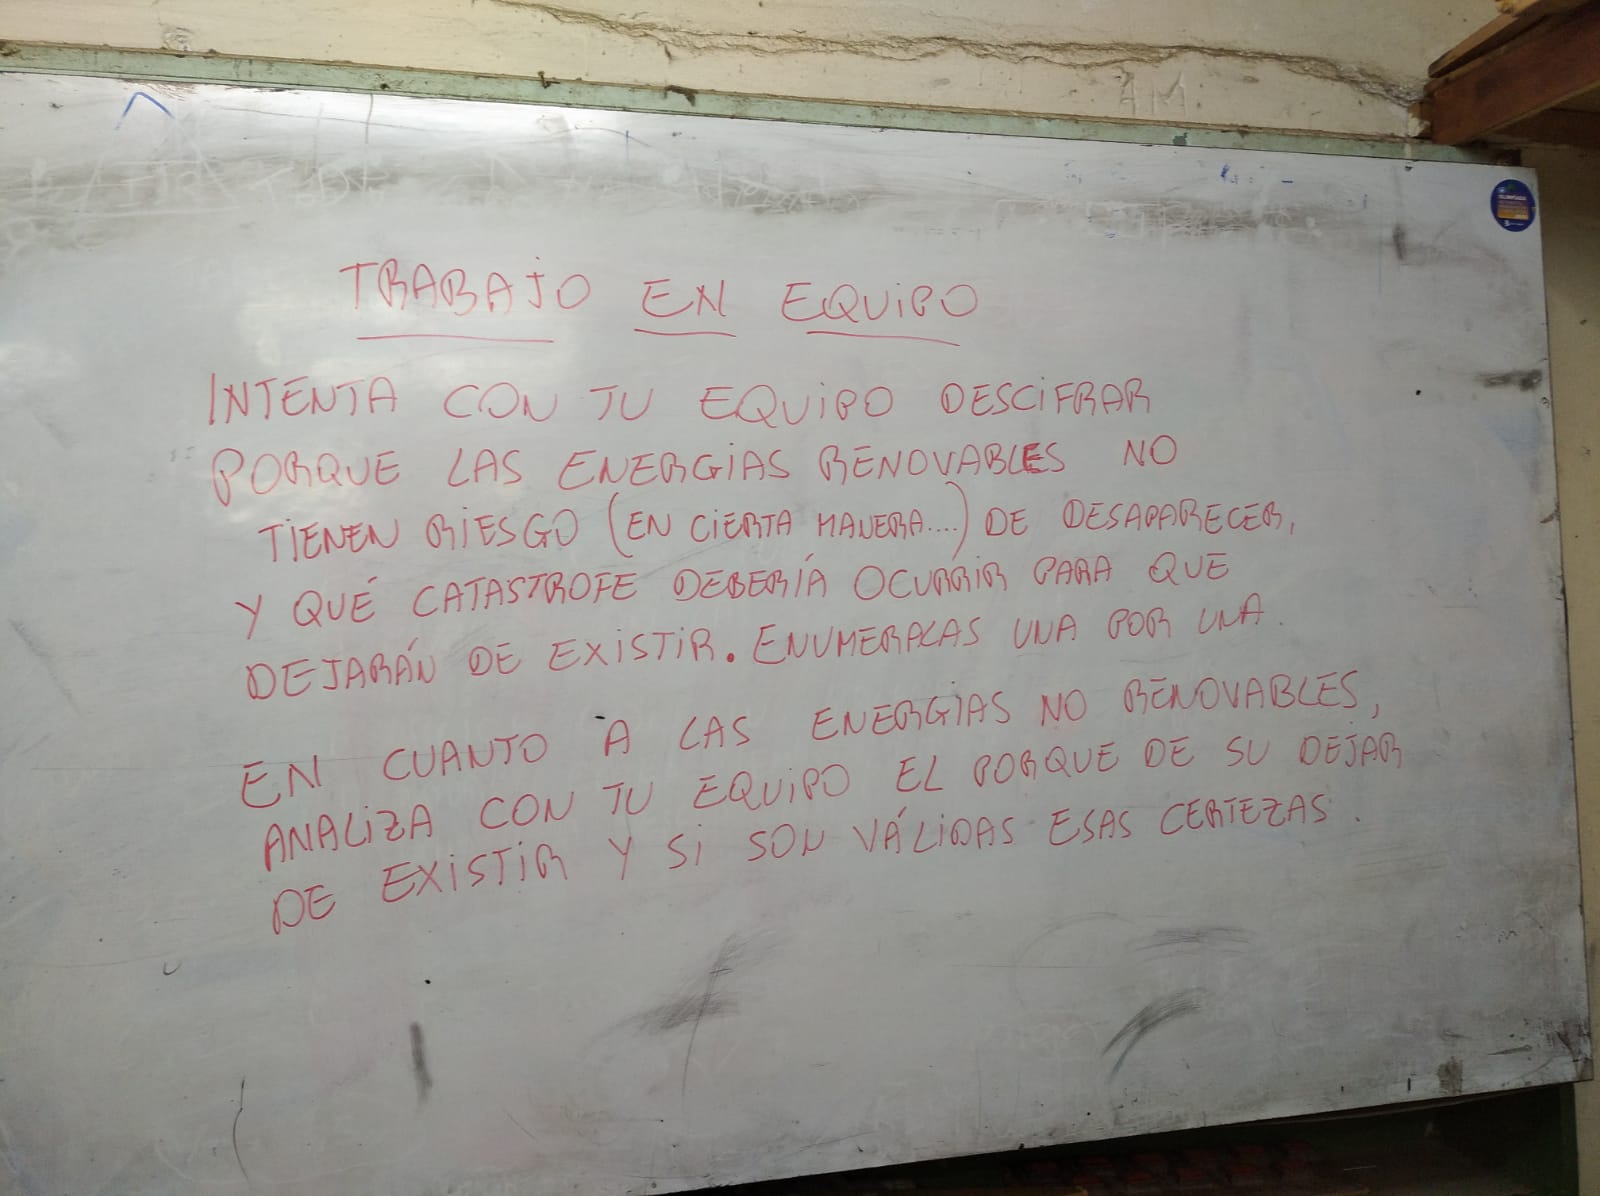 TRABAJO EN EQUIPO
INTENTA CON TU EQUIPO DESCIFRAR
PORQUE LAS ENERGIAS RENOVABLES NO
TIENEN RIESGO (EN CIERTA MANERA....) DE DESAPARECER,
Y QUÉ CATASTROFE DEBERÍA OCURRIR PARA QUE
DEJARÁN DE EXISTIR. ENUMERALAS UNA POR UNA.
EN CUANTO A LAS ENERGIAS NO RENOVABLES,
ANALIZA CON TU EQUIPO EL PORQUE DE SU DEJAR
DE EXISTIR Y SI SON VÁLIDAS ESAS CERTEZAS.